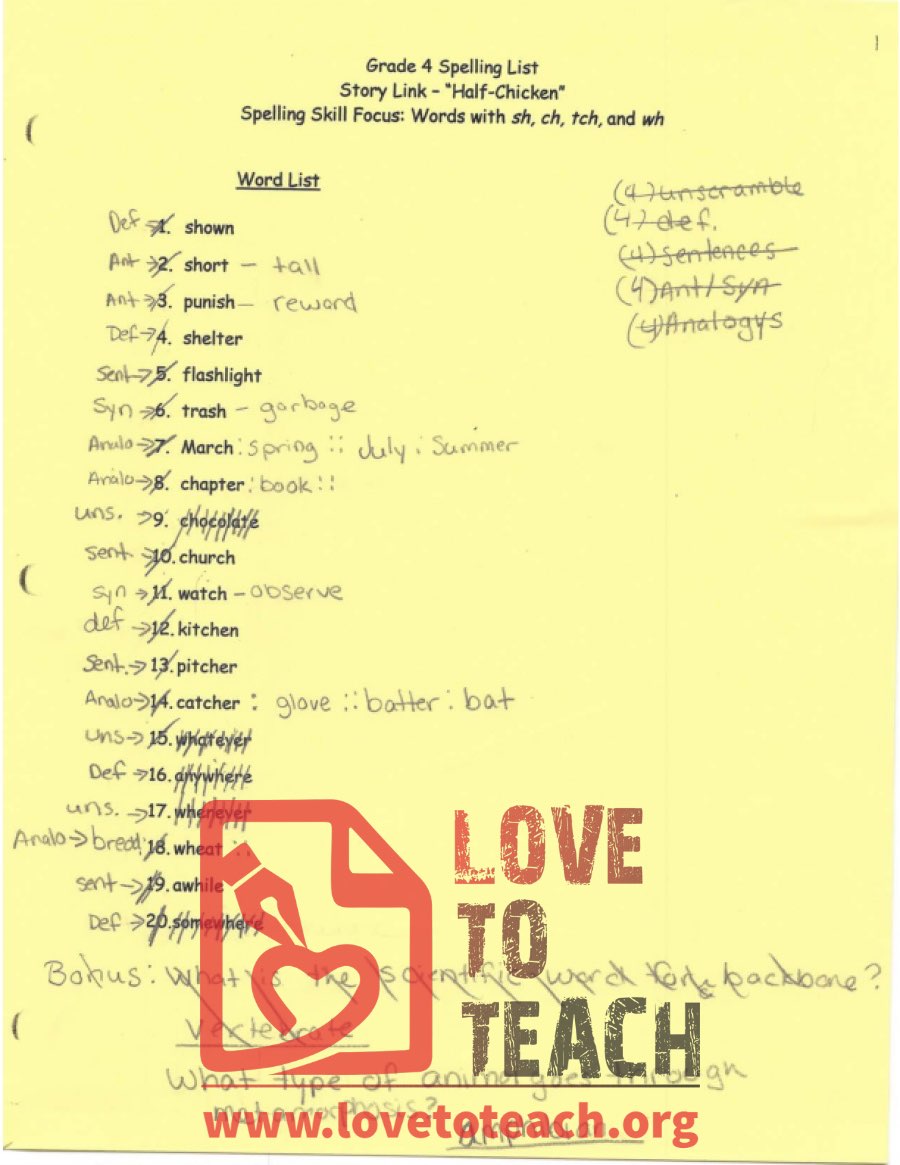 1
Grade 4 Spelling List
Story Link – "Half-Chicken"
Spelling Skill Focus: Words with sh, ch, tch, and wh
Word List
(4) unscramble
(4) def.
(4) sentences
(4) Ant/Syn
(4) Analogys
Def → 1. shown
Ant → 2. short – tall
Ant → 3. punish – reward
Def → 4. shelter
Sent → 5. flashlight
Syn → 6. trash – garbage
Analo → 7. March : spring :: July : Summer
Analo → 8. chapter : book ::
uns. → 9. chocolate
sent. → 10. church
syn → 11. watch – observe
def → 12. kitchen
Sent. → 13. pitcher
Analo → 14. catcher : glove :: batter : bat
uns → 15. whatever
Def → 16. anywhere
uns. → 17. whenever
Analo → bread : 18. wheat ::
sent → 19. awhile
Def → 20. somewhere
Bonus: What is the scientific word for backbone?
Vertebrate
What type of animal goes through
metamorphosis?
amphibian
LOVE
TO
TEACH
www.lovetoteach.org